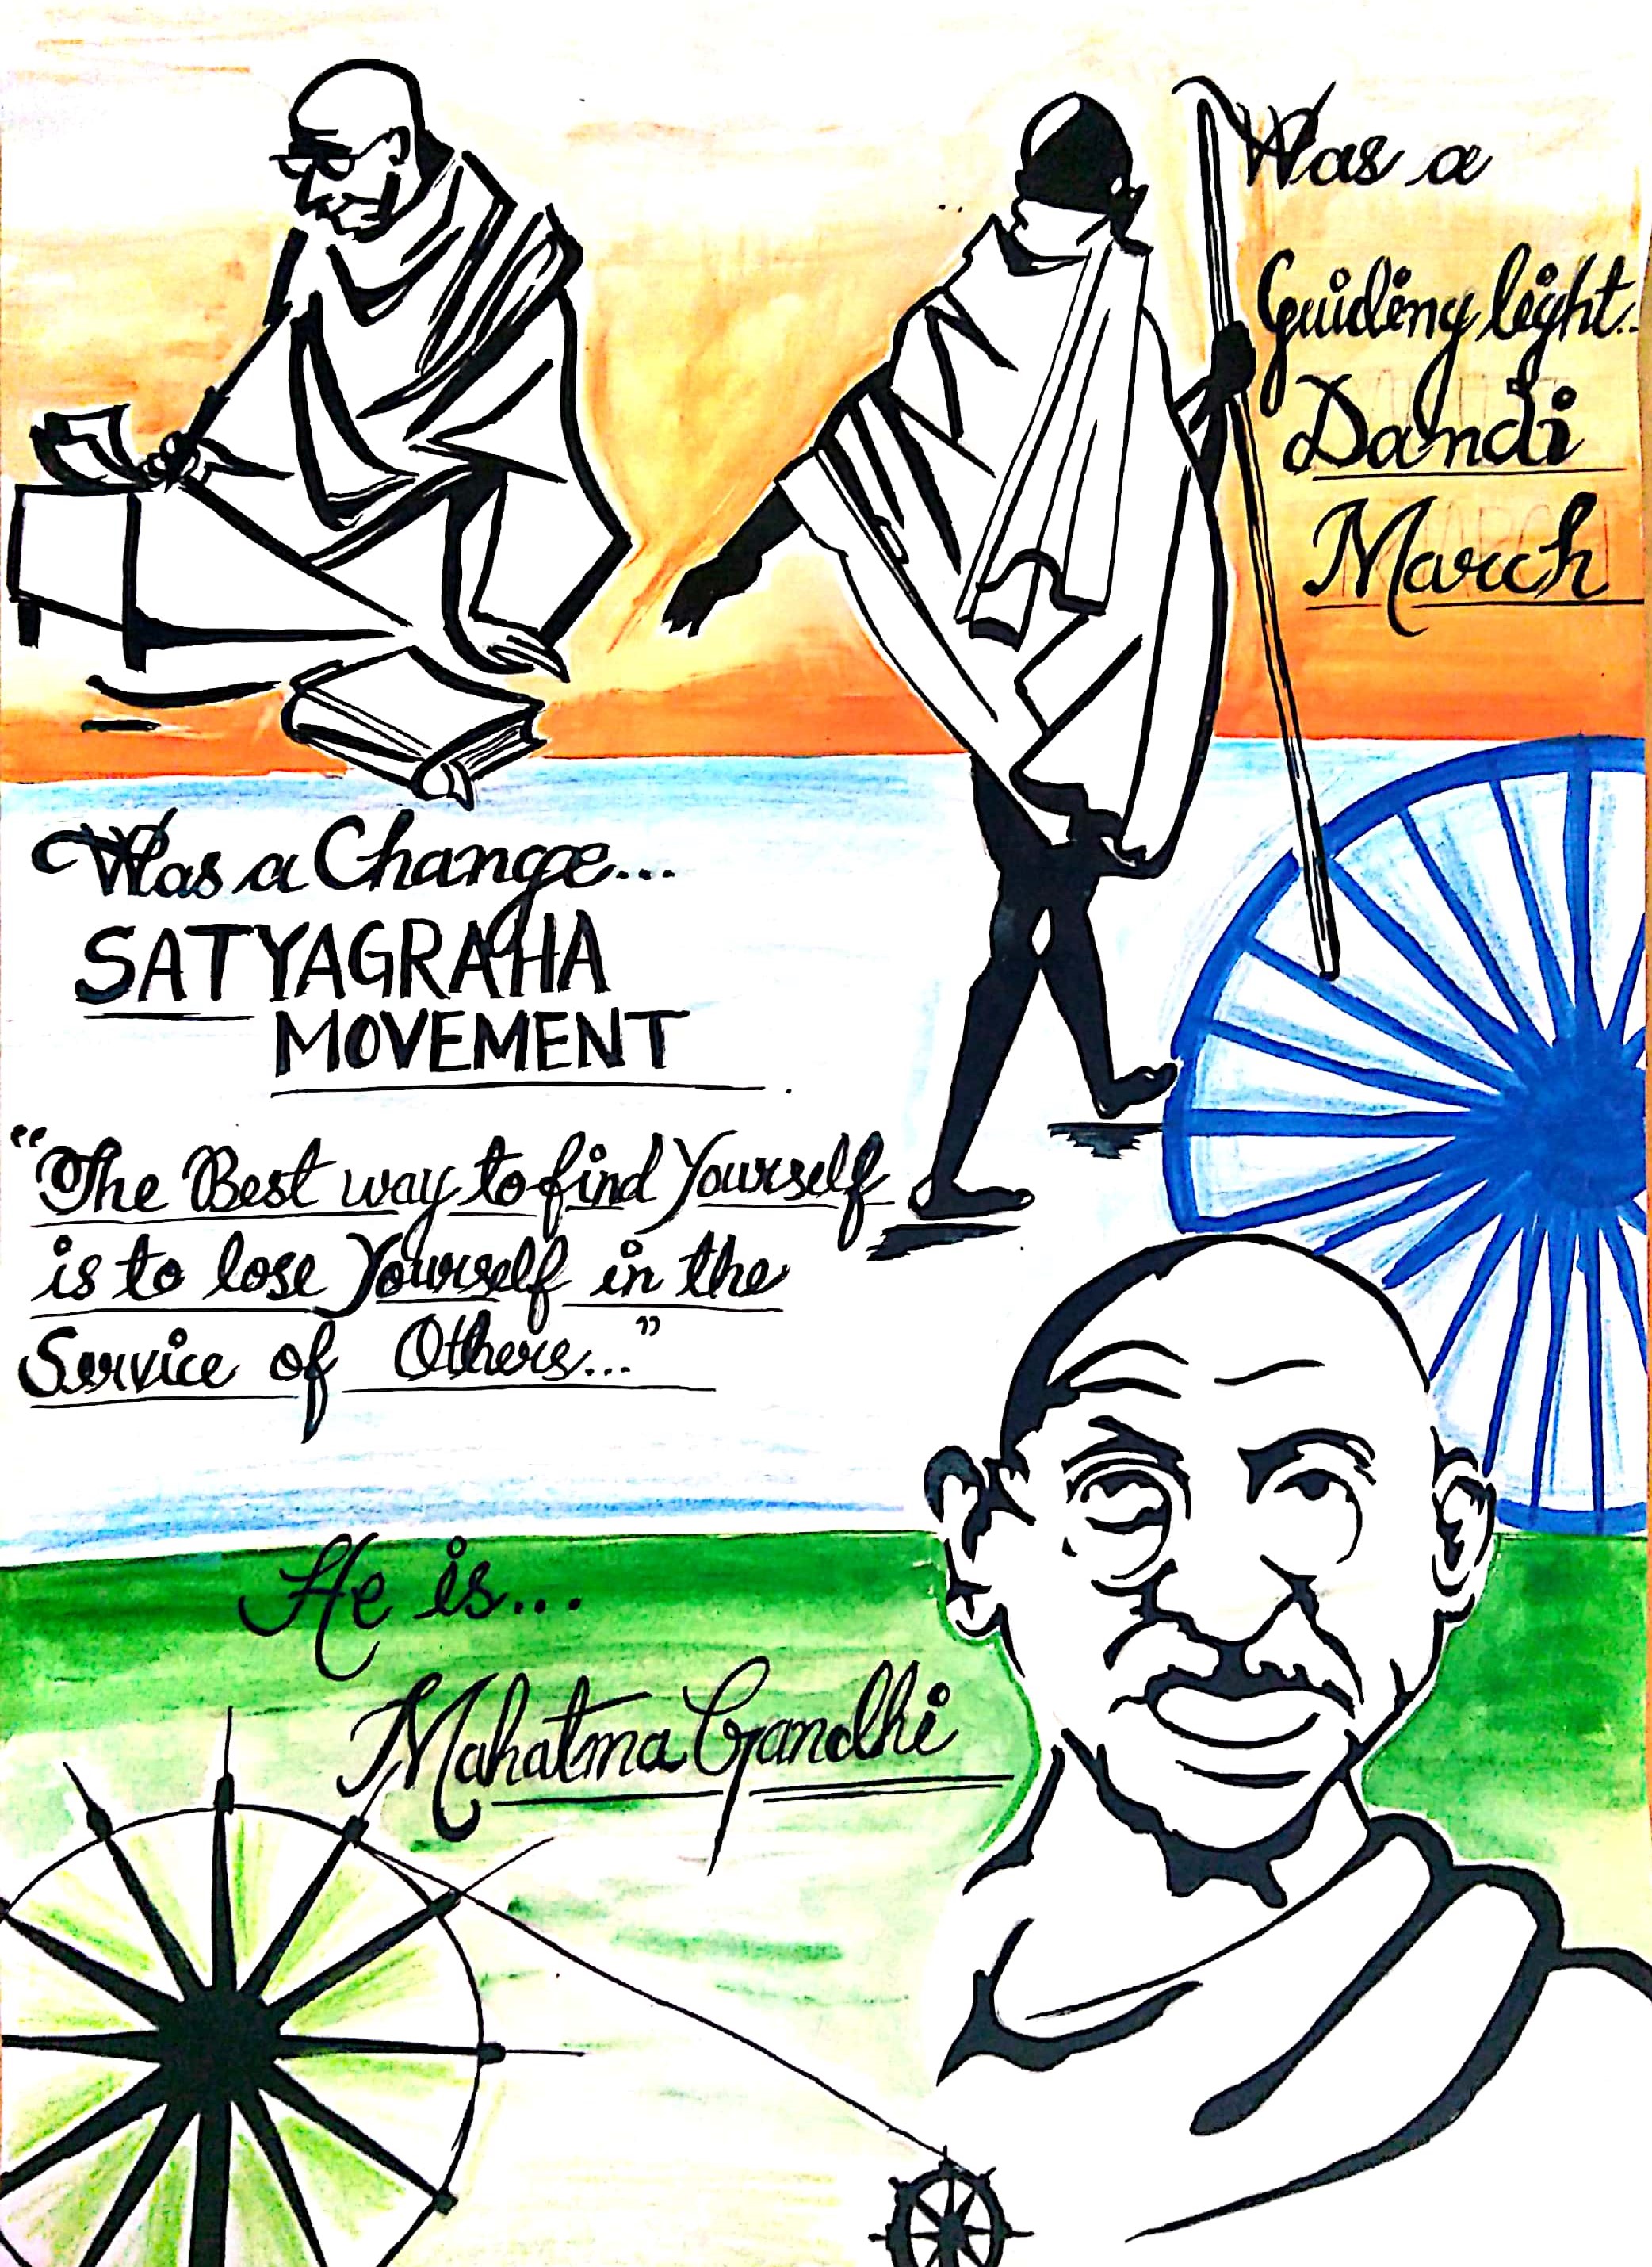 Was a
Guiding light..
Dandi
March
Was a Change...
SATYAGRAHA
MOVEMENT
"The Best way to find Yourself
is to lose Yourself in the
Service of Others..."
He is...
Mahatma Gandhi